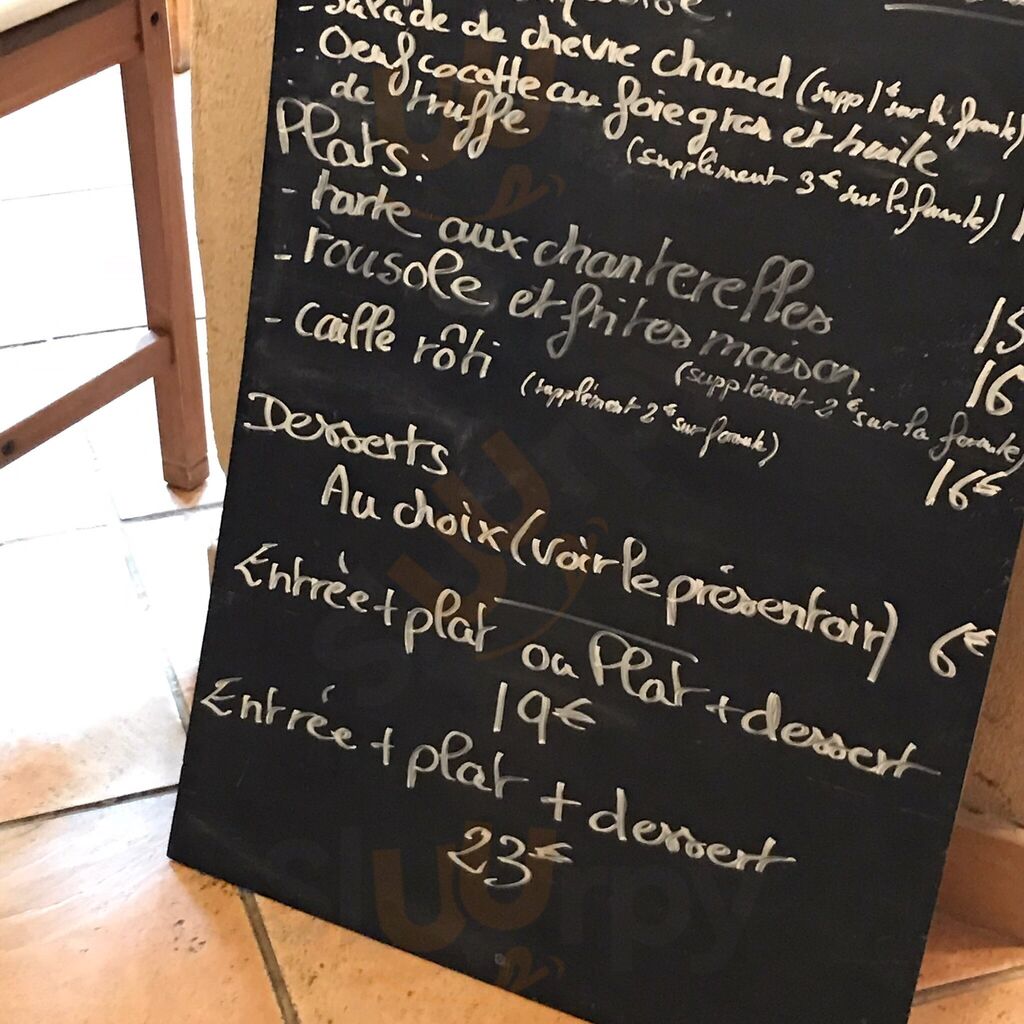 - Salade de chèvre chaud (supp 1€ sur la formule)
- Oeuf cocotte au foie gras et huile
de truffe
(supplément 3€ sur la formule)
Plats:
- tarte aux chanterelles 15
- rousole et frites maison. 16
(supplément 2€ sur la formule)
- Caille rôti 16€
(supplément 2€ sur formule)
Desserts
Au choix (voir le présentoir) 6€
Entrée + plat ou Plat + dessert
19€
Entrée + plat + dessert
23€
slurpy